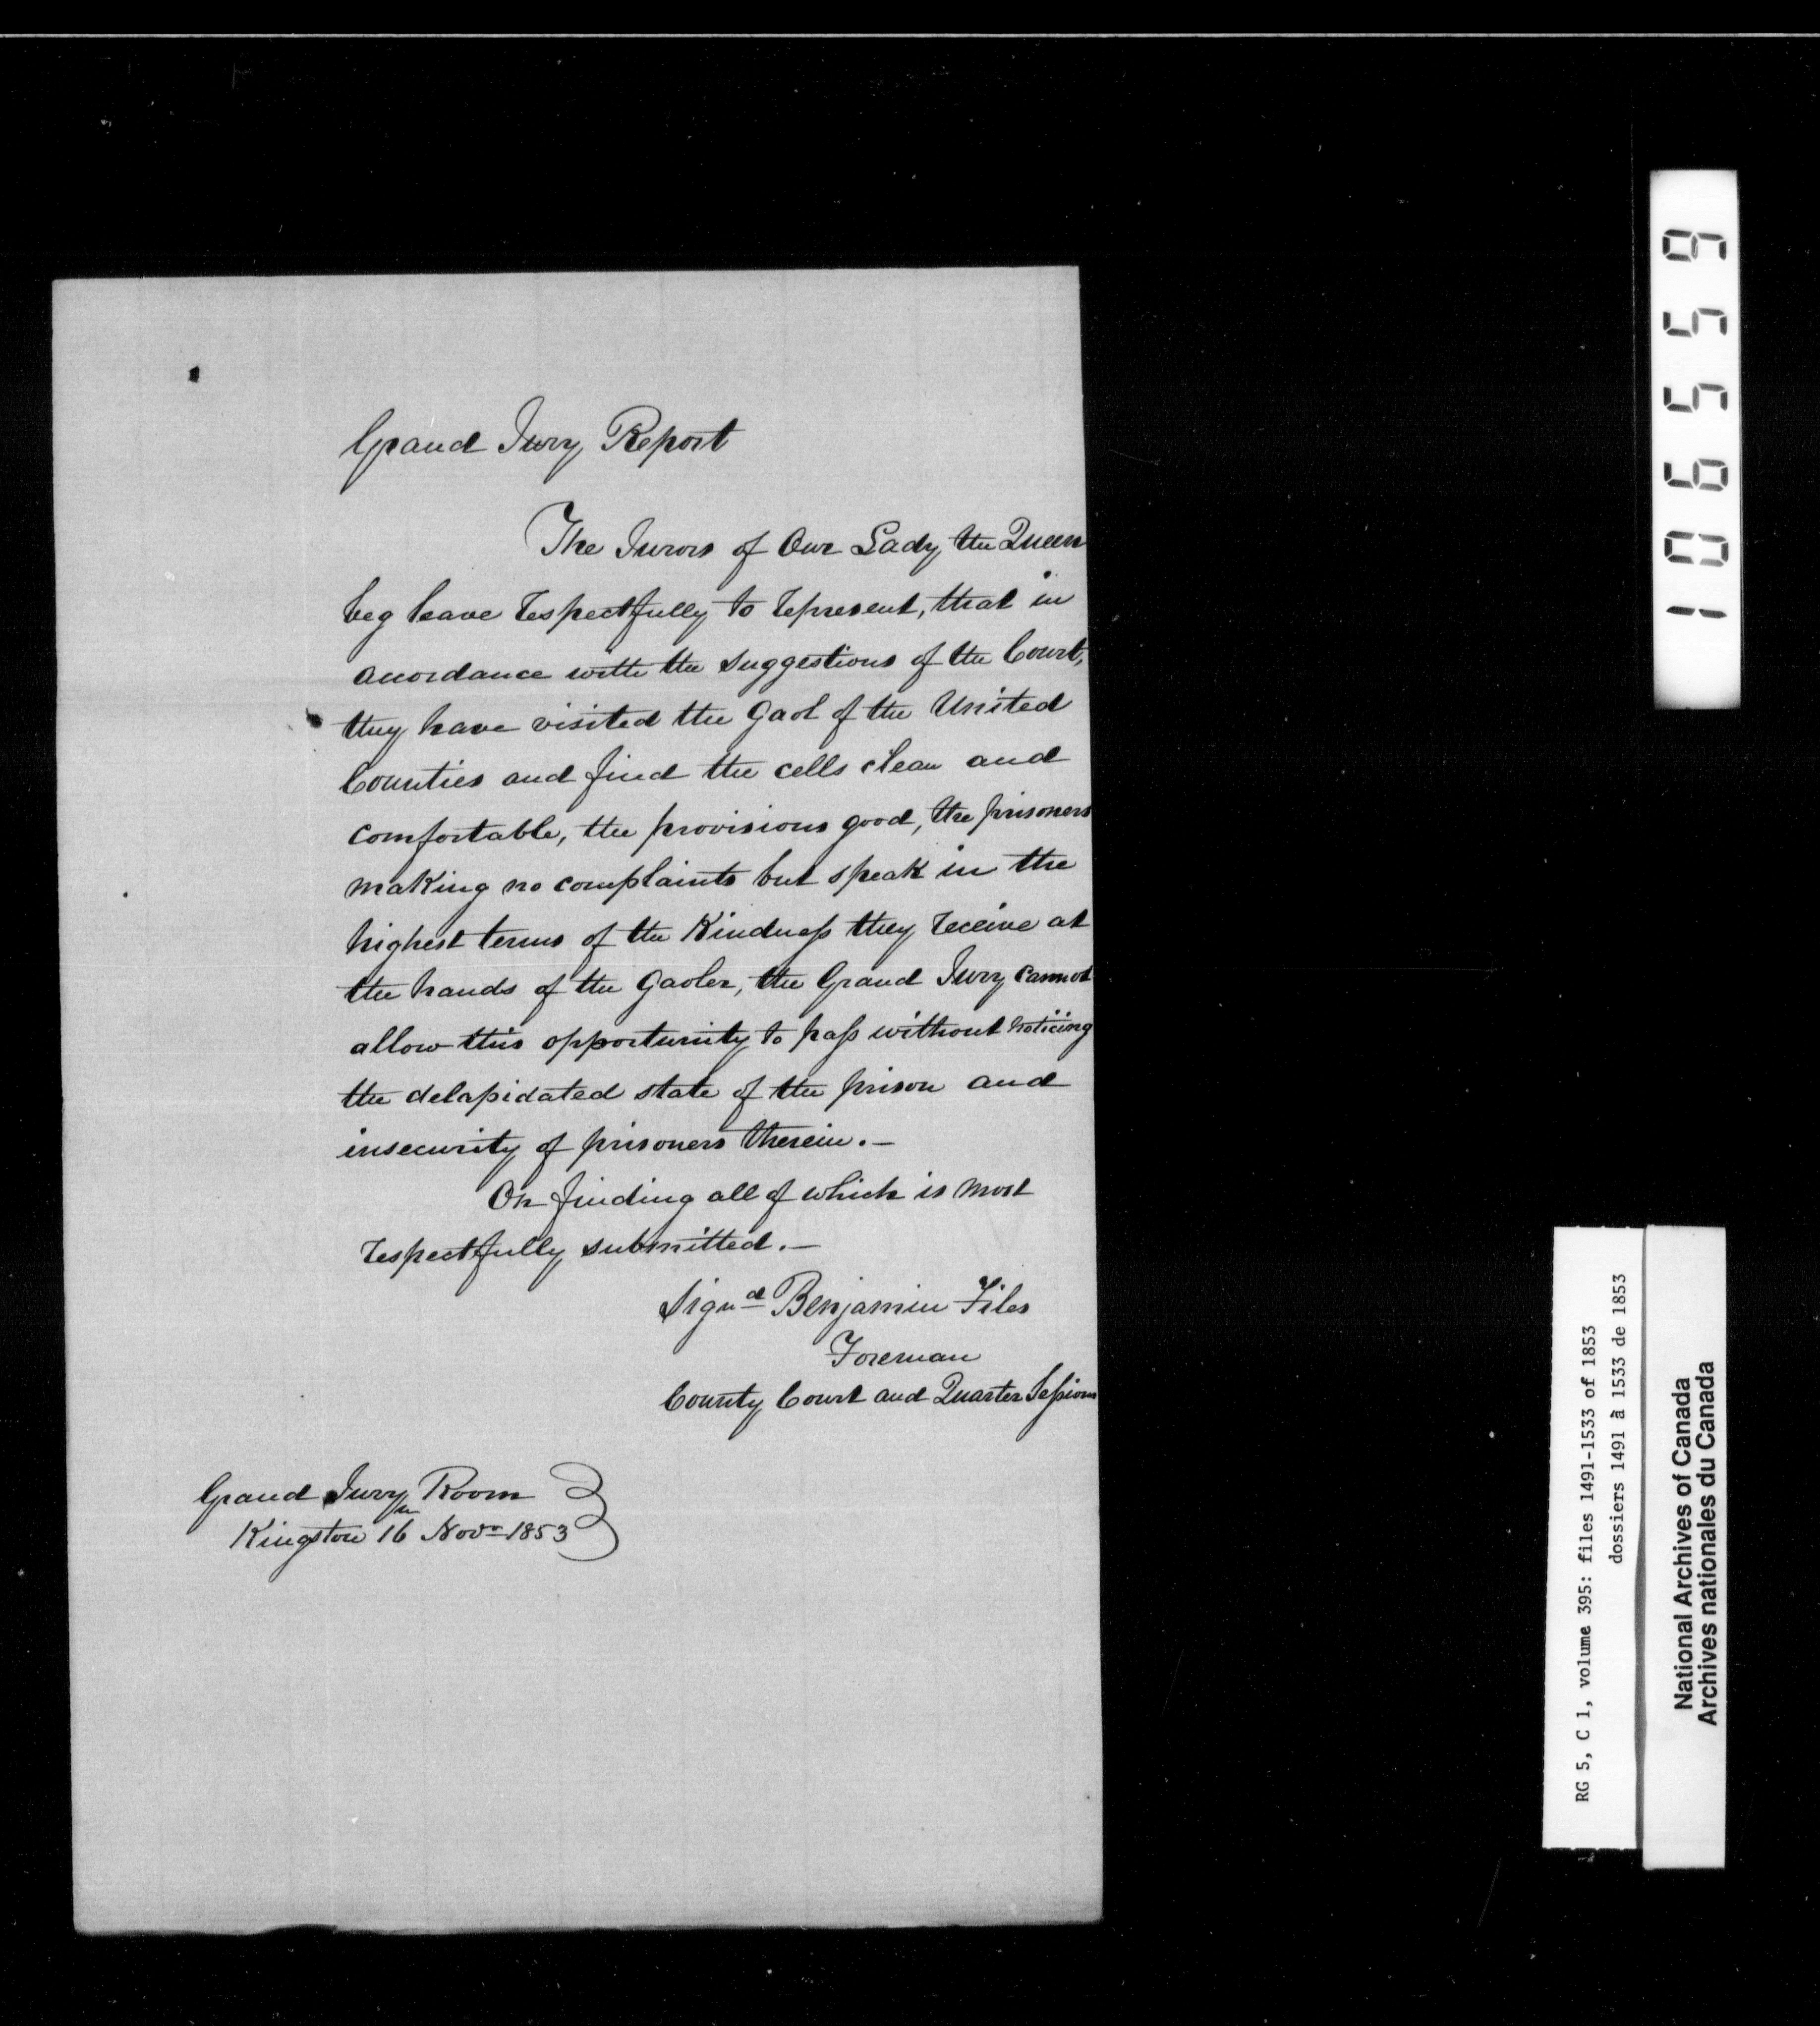 Grand Jury Report
The Jurors of Our Lady the Queen
beg leave respectfully to represent, that in
accordance with the suggestions of the Court,
they have visited the Gaol of the United
Counties and find the cells clean and
comfortable, the provisions good, the prisoners
making no complaints but speak in the
highest terms of the Kindness they receive at
the hands of the Gaoler, the Grand Jury cannot
allow this opportunity to pass without noticing
the delapidated state of the prison and
insecurity of prisoners therein.—
On finding all of which is most
respectfully submitted.—
Signd Benjamin Files
Foreman
County Court and Quarter Sessions
Grand Jury Room
Kingston 16th Novr 1853
1065559
RG 5, C 1, volume 395: files 1491-1533 of 1853
dossiers 1491 à 1533 de 1853
National Archives of Canada
Archives nationales du Canada